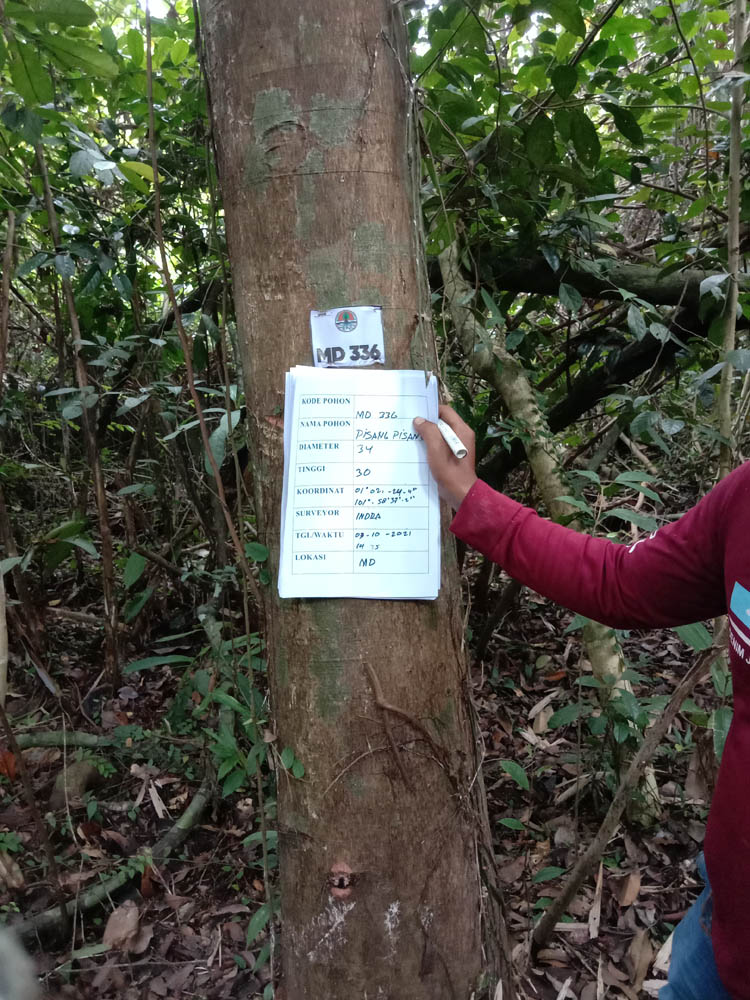 MD 336
KODE POHON MD 336
NAMA POHON PISANG PISANG
DIAMETER 34
TINGGI 30
KOORDINAT 01° 02' -24.4"
101°. 58' 37'.2"
SURVEYOR INDRA
TGL/WAKTU 07-10-2021
14
LOKASI MD